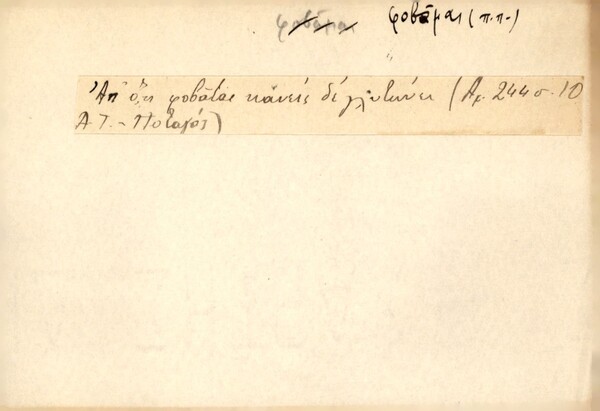 φοβᾶμαι φοβᾶμαι (π.π.)
Ἀπ' ὅτι φοβᾶται κἀνείς δέ γλυτώνει (Ἀρ. 244 σ. 10
Α.Τ. - Ποταμός)